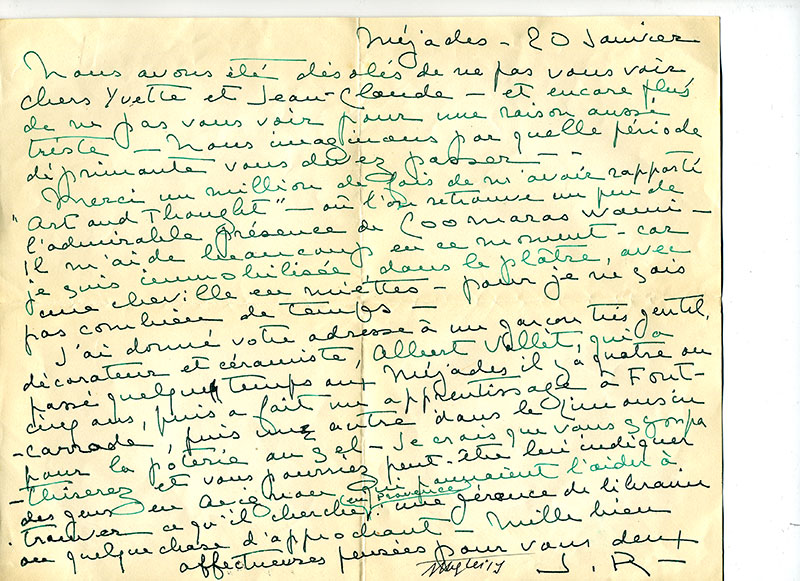 Méjades - 20 Janvier
Nous avons été désolés de ne pas vous voir
chers Yvette et Jean-Claude - et encore plus
de ne pas vous voir pour une raison aussi
triste - Nous imaginons par quelle période
déprimante vous devez passer - -
Merci un million de fois de m'avoir rapporté
"Art and Thought" - où l'on retrouve un peu de
l'admirable présence de Coomaraswami -
Il m'aide beaucoup en ce moment - car
je suis immobilisée, dans le plâtre, avec
une cheville en miettes - pour je ne sais
pas combien de temps -
J'ai donné votre adresse à un garçon très gentil,
décorateur et céramiste, Albert Vallet, qui a
passé quelque temps aux Méjades il y a quatre ou
cinq ans, puis a fait un apprentissage à Font-
-carrade, puis un autre dans le Limousin
pour la poterie au sel - Je crois que vous sympa
-thiserez et vous pourriez peut-être lui indiquer
des gens en Avignon (en Provence) qui pourraient l'aider à
trouver ce qu'il cherche: une gérance de librairie
ou quelque chose d'approchant - Mille bien
affectueuses pensées pour vous deux
J. R -